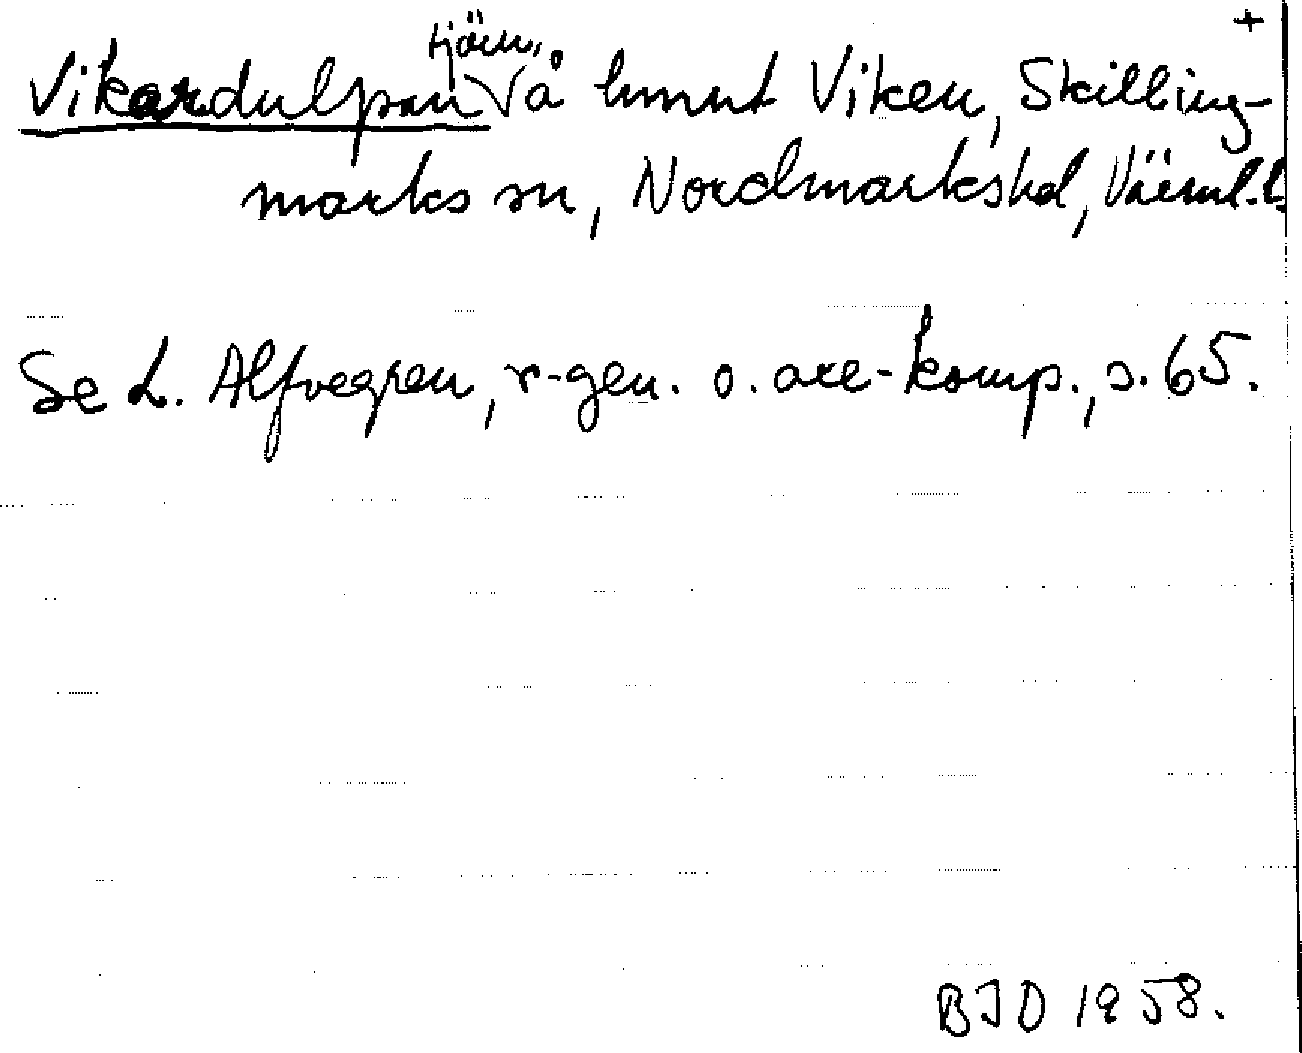 +
tjärn,
Vikardulpan på hmnt Viken, Skilling-
marks sn, Nordmarkshd, Värml.l.
Se L. Alfvegren, r-gen. o. are-komp., s. 65.
BJD 1958.